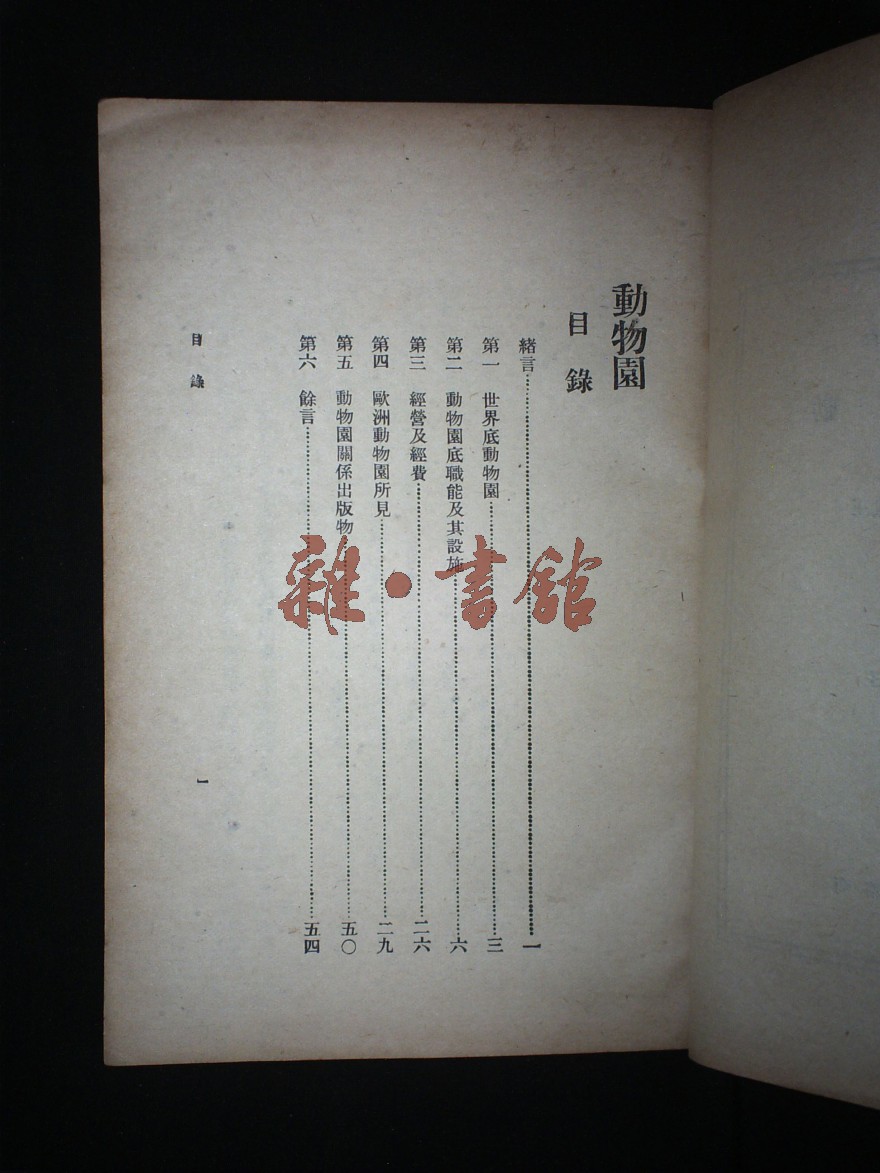 動物園
目錄
緒言……一
第一 世界底動物園……三
第二 動物園底職能及其設施……六
第三 經營及經費……二六
第四 歐洲動物園所見……二九
第五 動物園關係出版物……五〇
第六 餘言……五四
目錄
一
雜·書館